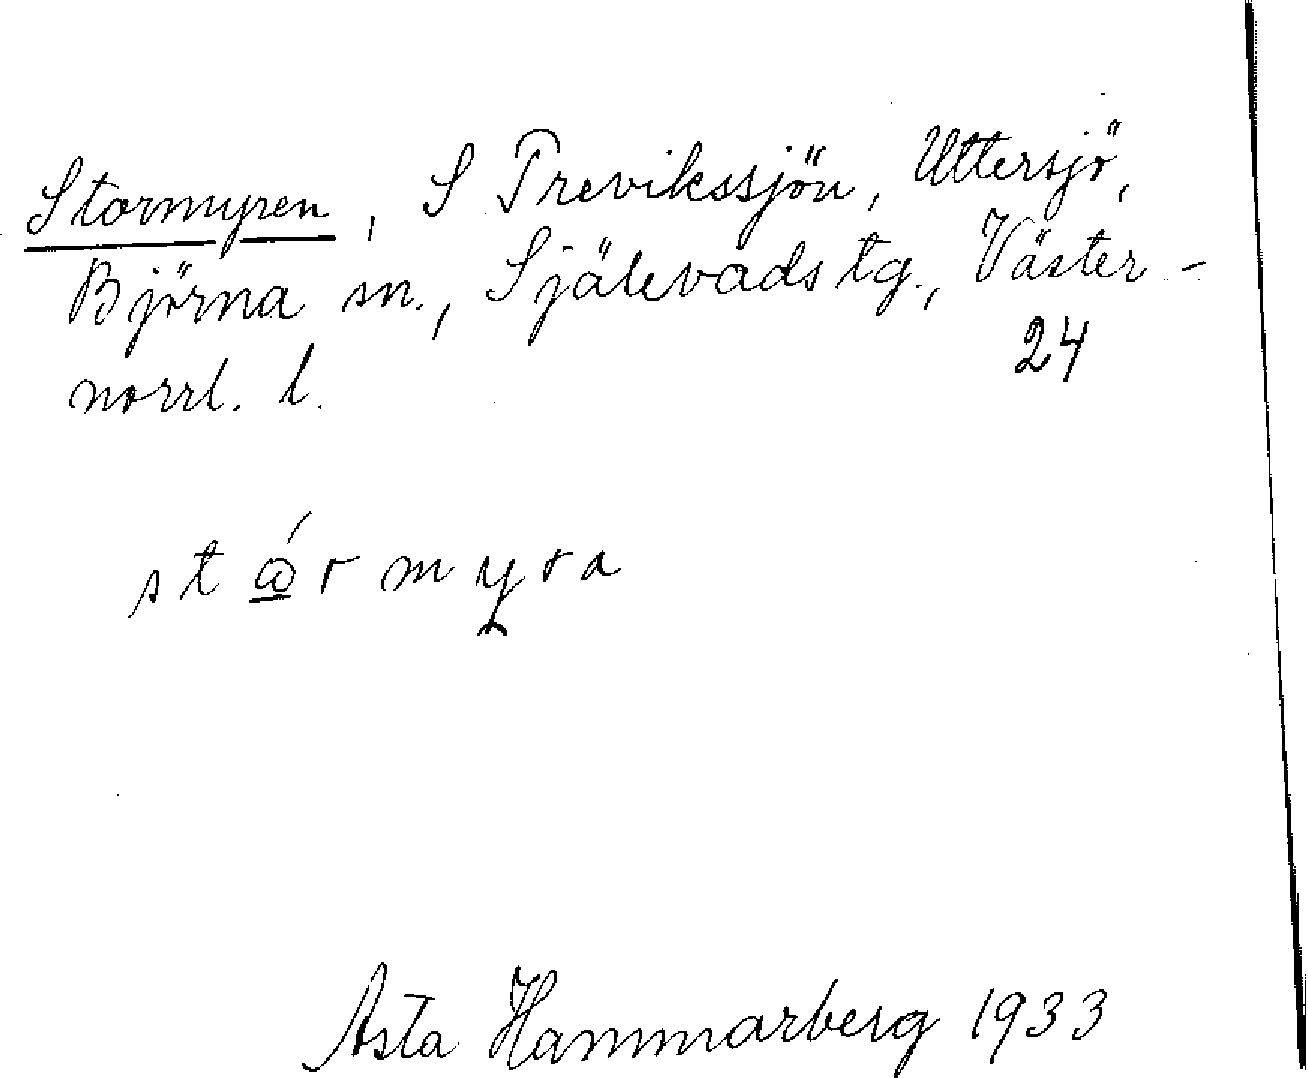 Stormyren, S Trevikssjön, Uttersjö,
Björna sn., Själevads tg., Väster-
norrl. l.
24
stώrmyra
Asta Hammarberg 1933